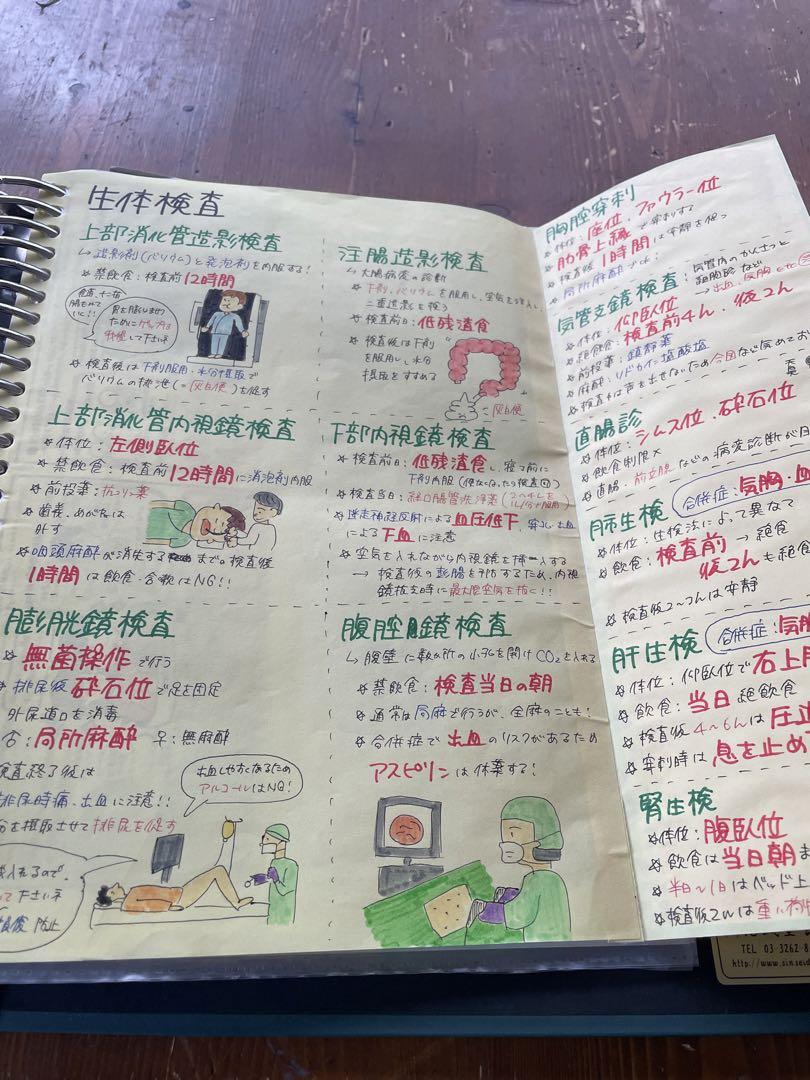 生体検査
上部消化管造影検査
↳ 造影剤(バリウム)と発泡剤を内服する!
✲ 禁飲食:検査前12時間
胃を膨らますために
ゲップは
我慢して下さい
✲ 検査後は下剤服用・水分摂取で
バリウムの排泄(=灰白便)を促す
上部消化管内視鏡検査
✲ 体位:左側臥位
✲ 禁飲食:検査前12時間に消泡剤内服
✲ 前投薬:抗コリン薬
✲ 義歯、めがねは
外す
✲ 咽頭麻酔が消失するまで。検査後
1時間は飲食・含嗽はNG!!
膀胱鏡検査
✲ 無菌操作で行う
✲ 排尿後 砕石位で足を固定
外尿道口を消毒
♂:局所麻酔 ♀:無麻酔
検査終了後は
排尿時痛、出血に注意!!
水分を摂取させて排尿を促す
出血しやすくなるため
アルコールはNG!
注腸造影検査
↳ 大腸病変の診断
✲ 下剤、バリウムを服用し、空気を注入し、
二重造影を使う
✲ 検査前日:低残渣食
✲ 検査後は下剤
を服用し、水分
摂取をすすめる
=灰白便
下部内視鏡検査
✲ 検査前日:低残渣食し、寝る前に
下剤内服
✲ 検査当日:経口腸管洗浄薬
✲ 迷走神経反射による血圧低下、穿孔・出血
による下血に注意
✲ 空気を入れながら内視鏡を挿入する
→ 検査後の膨腸を予防するため、内視
鏡抜去時に最大限空気を抜く!!
腹腔鏡検査
↳ 腹壁に数ヵ所の小孔を開けCO₂を入れる
✲ 禁飲食:検査当日の朝
✲ 通常は局麻で行うが、全麻のことも!
✲ 合併症で出血のリスクがあるため
アスピリンは休薬する!
胸腔穿刺
✲ 体位:座位、ファウラー位
✲ 肋骨上縁で穿刺する
✲ 検査後1時間は安静を保つ
✲ 局所麻酔
気管支鏡検査
✲ 体位:仰臥位
✲ 絶飲食:検査前4h、後2h
✲ 前投薬:鎮静薬
✲ 麻酔:リドカイン塩酸塩
✲ 検査中は声を出せないため合図など決めてお
直腸診
✲ 体位:シムス位、砕石位
✲ 飲食制限×
✲ 直腸、前立腺などの病変診断が
肺生検
合併症:気胸、血
✲ 体位:生検法によって異なる
✲ 飲食:検査前 → 絶食
後2hも絶食
✲ 検査後2〜3hは安静
肝生検
合併症:気胸
✲ 体位:仰臥位で右上
✲ 飲食:当日絶飲食
✲ 検査後4〜6hは圧迫
✲ 穿刺時は息を止め
腎生検
✲ 体位:腹臥位
✲ 飲食は当日朝
✲ 半日〜1日はベッド上
✲ 検査後2Wは重い
TEL 03-3262-8
http://www.sinseid